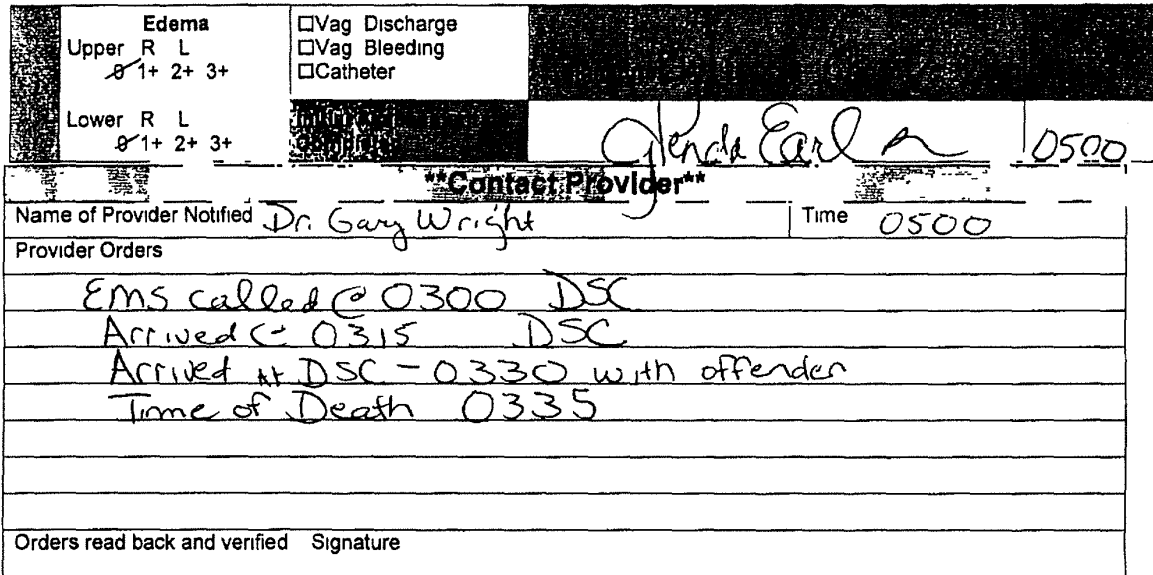 Edema
Upper R L
0 1+ 2+ 3+
Lower R L
0 1+ 2+ 3+
☐Vag Discharge
☐Vag Bleeding
☐Catheter
Glenda Earl 0500
**Contact Provider**
Name of Provider Notified Dr. Gary Wright Time 0500
Provider Orders
EMS called @ 0300 DSC
Arrived @ 0315 DSC
Arrived at DSC - 0330 with offender
Time of Death 0335
Orders read back and verified Signature